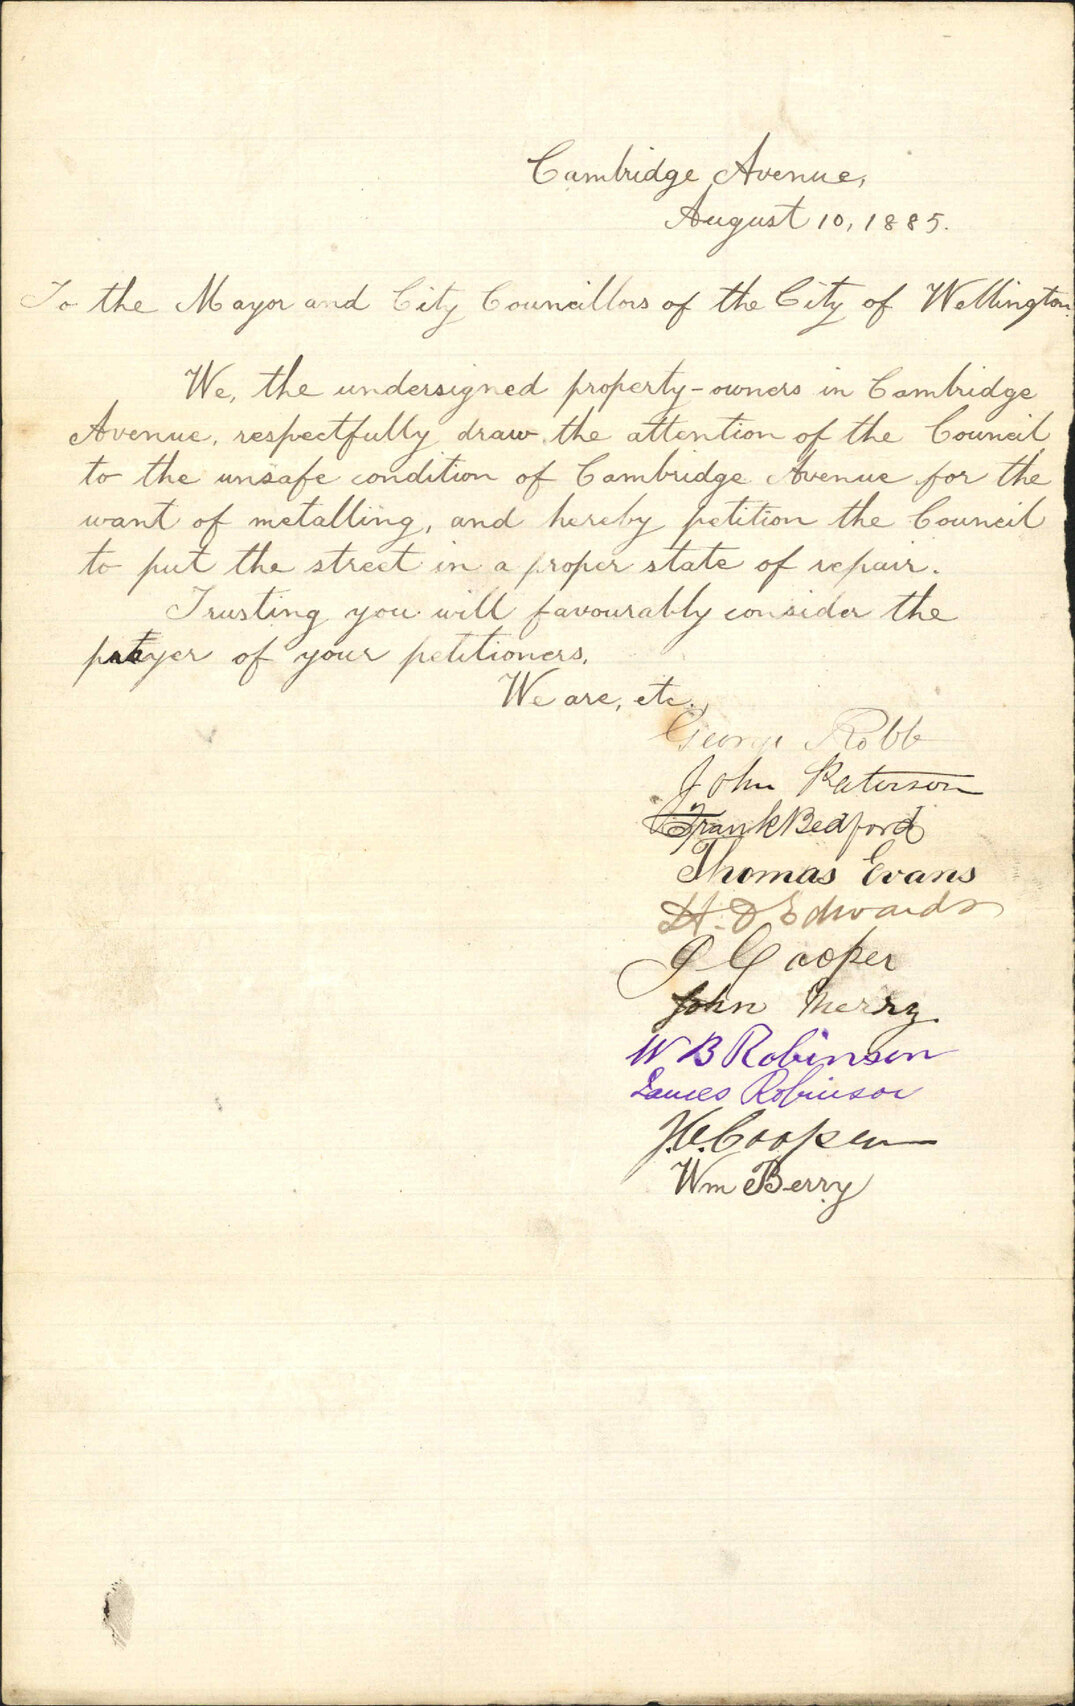 Cambridge Avenue,
August 10, 1885.
To the Mayor and City Councillors of the City of Wellington.
We, the undersigned property-owners in Cambridge
Avenue, respectfully draw the attention of the Council
to the unsafe condition of Cambridge Avenue for the
want of metalling, and hereby petition the Council
to put the street in a proper state of repair.
Trusting you will favourably consider the
prayer of your petitioners,
We are, etc.,
George Robb
John Paterson
Frank Bedford
Thomas Evans
H. D Edwards
Cooper
John Merry
W B Robinson
James Robinson
Cooper
Wm Berry